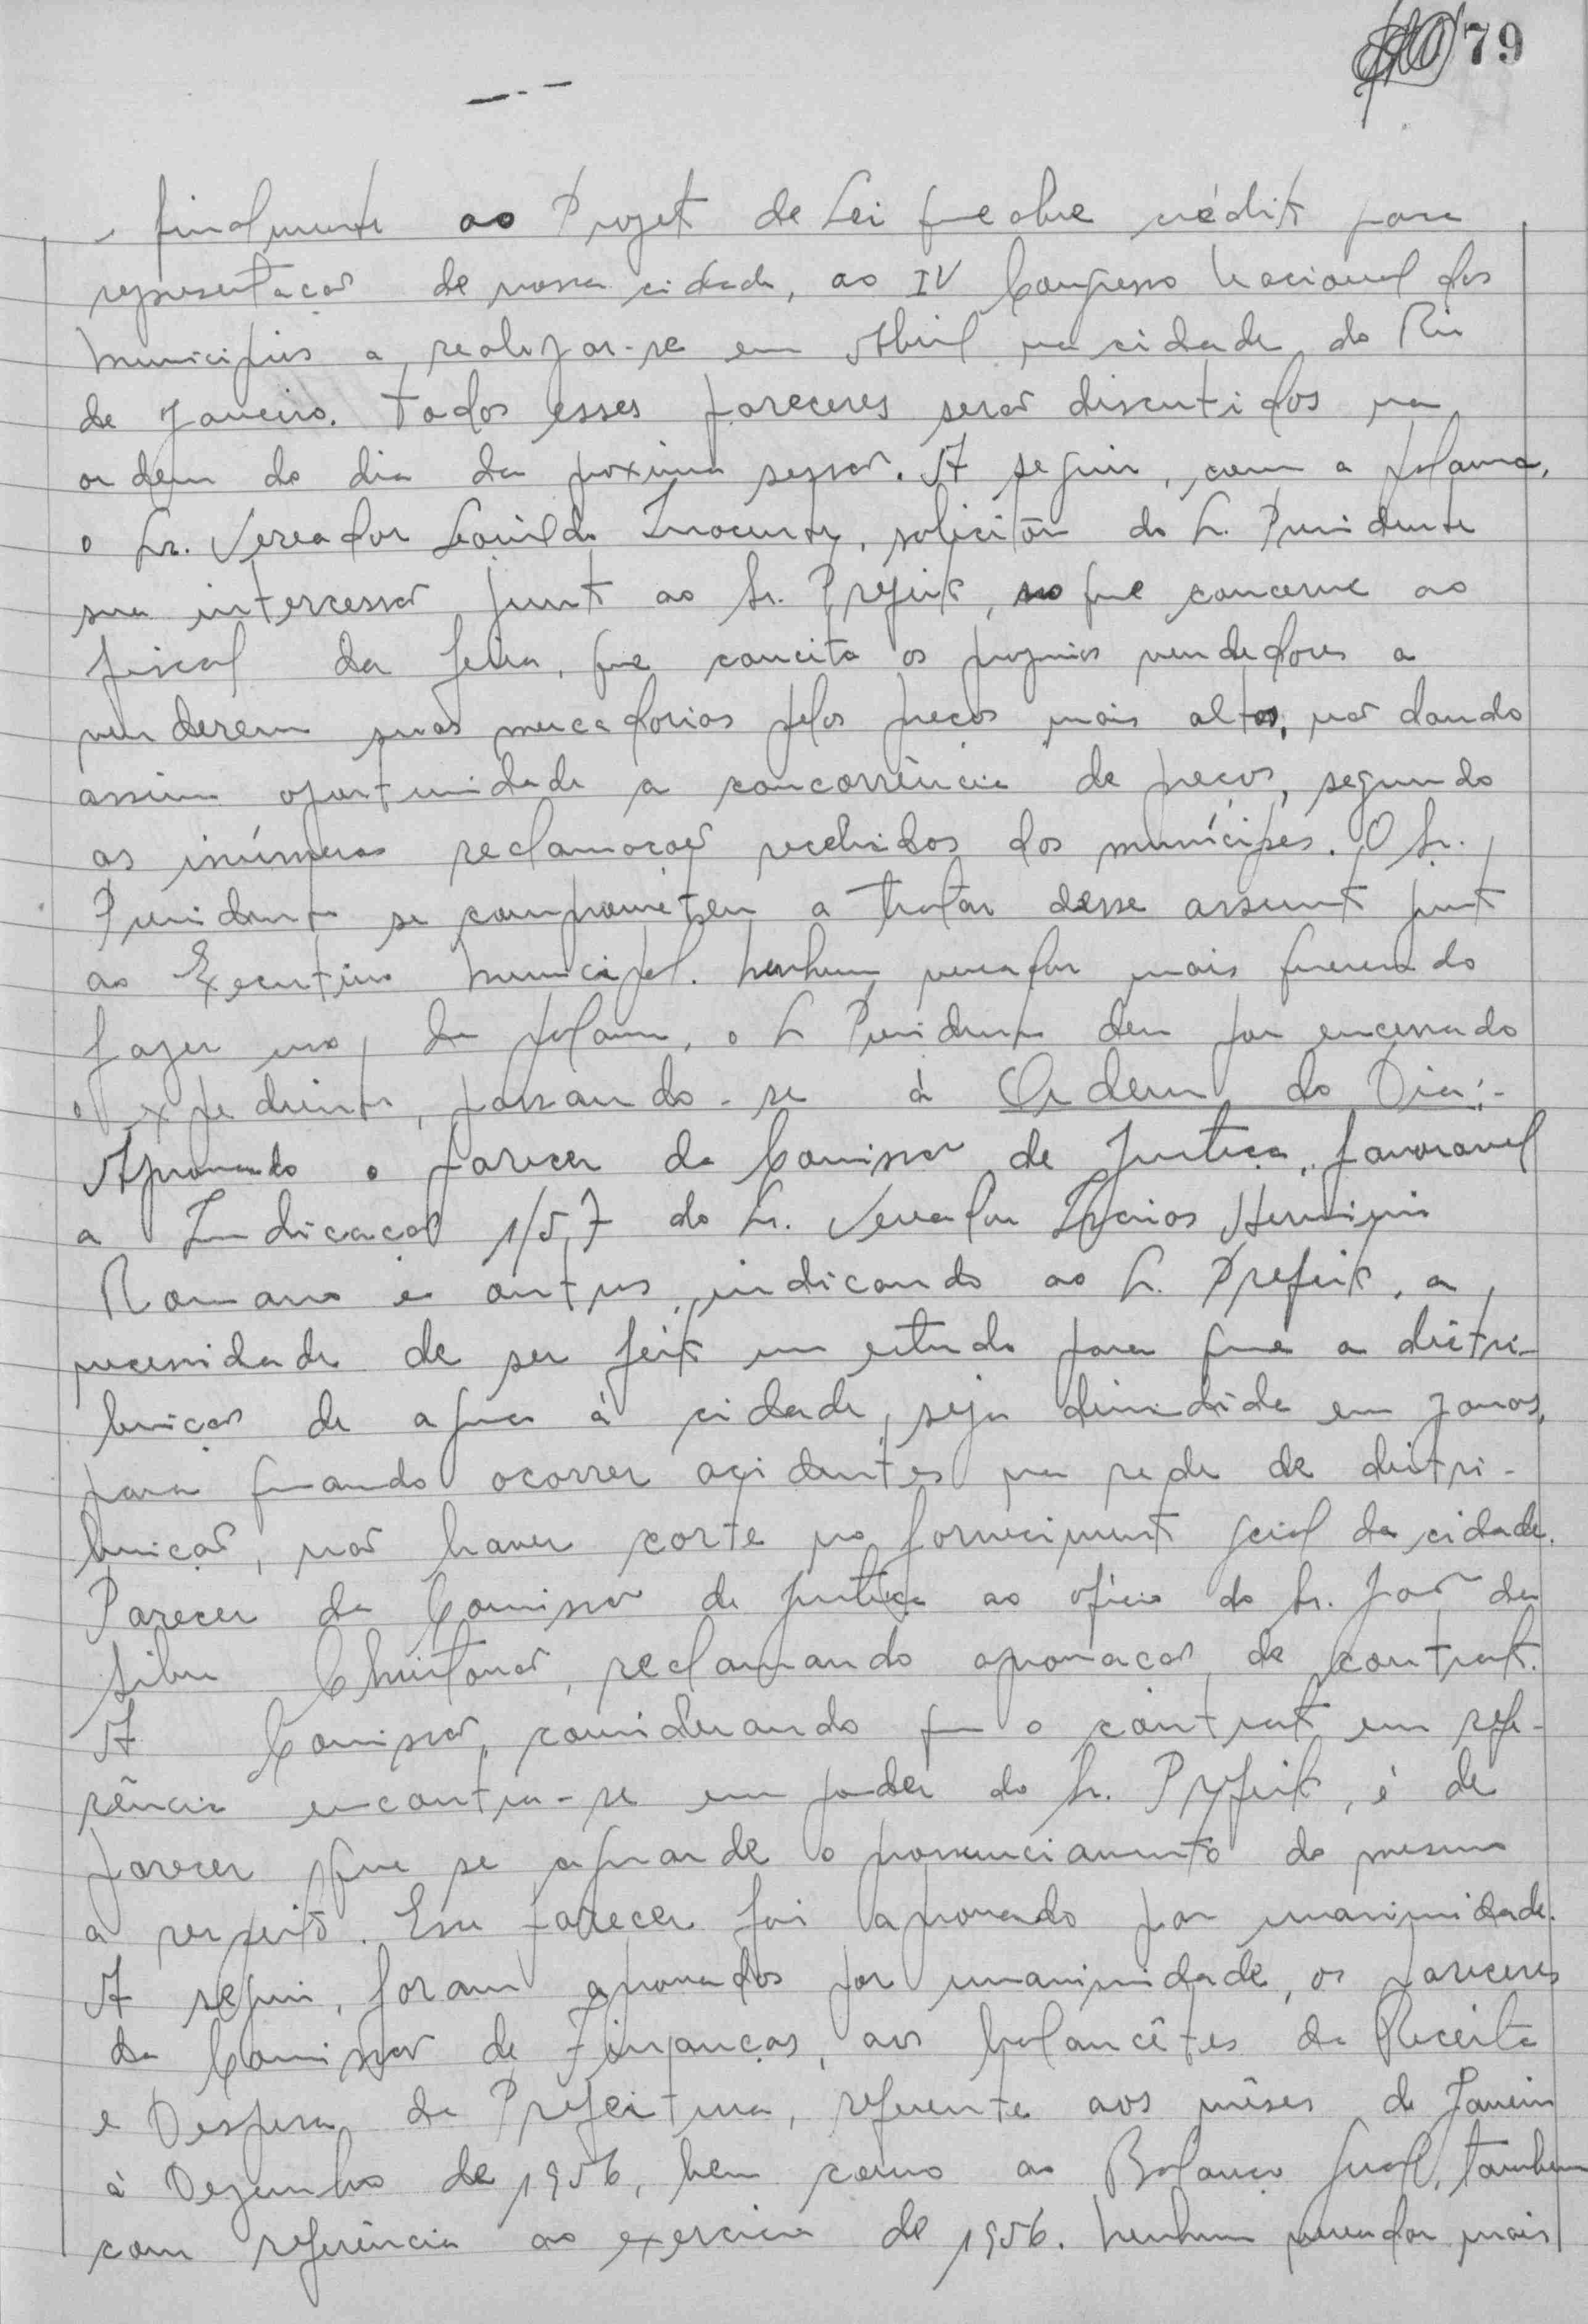 79
e finalmente ao Projeto de Lei que abre crédito para
representação de nossa cidade, ao IV Congresso Nacional dos
Municipios a realizar-se em Abril na cidade do Rio
de Janeiro. Todos esses pareceres serão discutidos na
ordem do dia da proxima sessão. A seguir, com a palavra,
o Sr. Vereador Leonildo Inocente, solicitou do Sr. Presidente
sua intercessão junto ao Sr. Prefeito, no que concerne ao
fiscal da feira, que concita os proprios vendedores a
venderem suas mercadorias pelos preços mais altos, não dando
assim oportunidade a concorrência de preços, segundo
as inúmeras reclamações recebidas dos munícipes. O Sr.
Presidente se comprometeu a tratar desse assunto junto
ao Executivo Municipal. Nenhum vereador mais querendo
fazer uso da palavra, o Sr Presidente deu por encerrado
o expediente, passando-se à Ordem do Dia:-
Aprovado o parecer da Comissão de Justiça, favoravel
a Indicação 1/57 do Sr. Vereador Herminio
Romano e outros, indicando ao Sr. Prefeito, a
necessidade de ser feito um estudo para que a distri-
buição de agua à cidade, seja dividida em zonas,
para quando ocorrer acidentes na rede de distri-
buição, não haver corte no fornecimento geral da cidade.
Parecer da Comissão de Justiça ao oficio do Sr. João da
Silva Christovão, reclamando aprovação de contrato.
A Comissão, considerando que o contrato em refe-
rência encontra-se em poder do Sr. Prefeito, é de
parecer que se aguarde o pronunciamento do mesmo
a respeito. Esse parecer foi aprovado por unanimidade.
A seguir, foram aprovados por unanimidade, os pareceres
da Comissão de Finanças, aos balancêtes da Receita
e Despesa da Prefeitura, referente aos mêses de Janeiro
à Dezembro de 1956, bem como ao Balanço Geral, tambem
com referência ao exercicio de 1956. Nenhum vereador mais